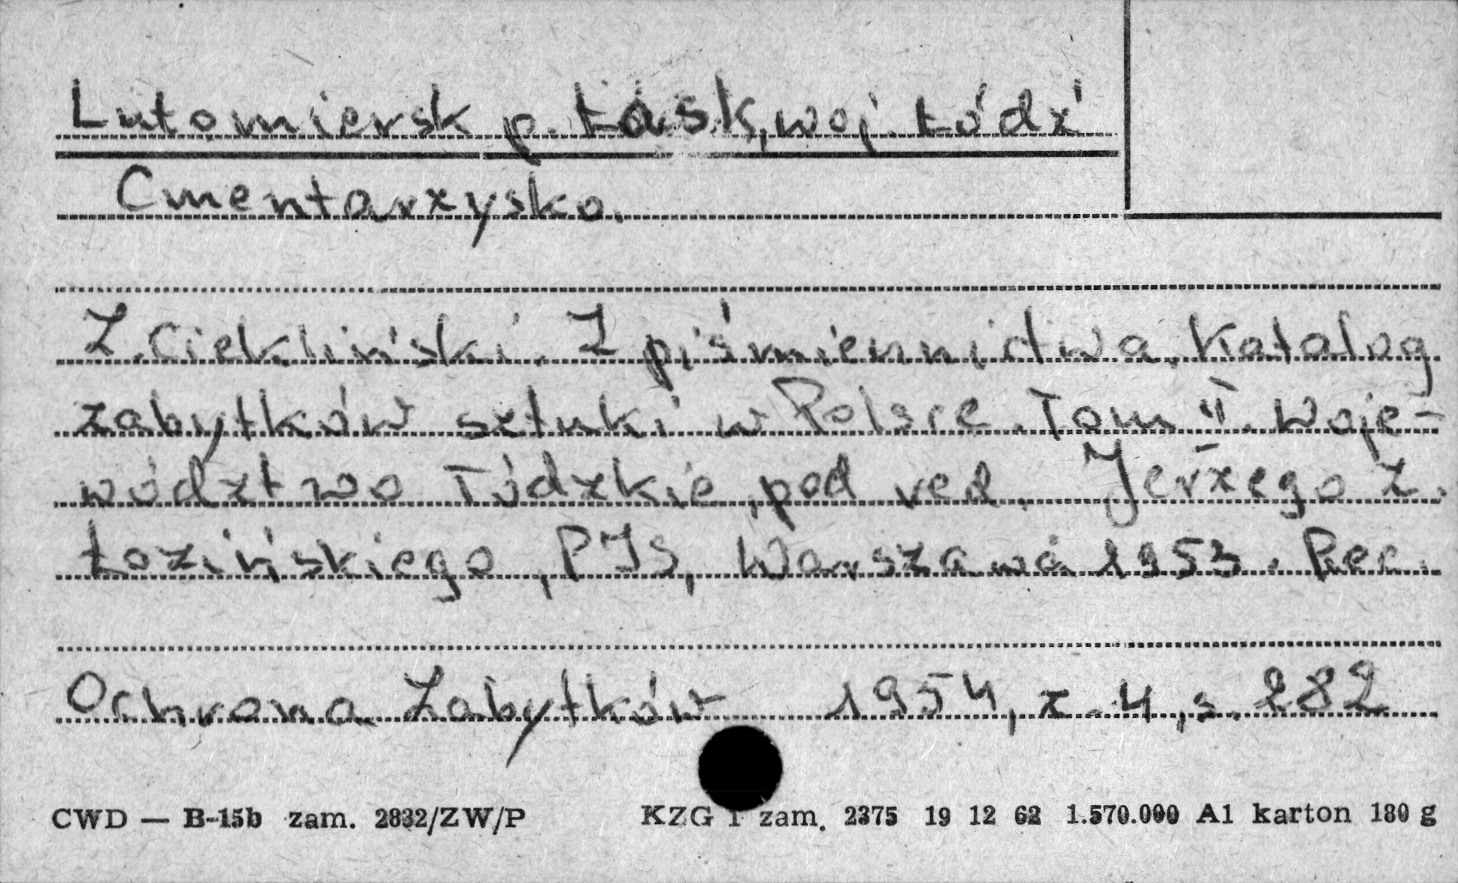 Lutomiersk p. Łask, woj. Łódź
Cmentarzysko.
Z. Ciekliński. Z piśmiennictwa. Katalog
zabytków sztuki w Polsce. Tom II. Woje-
wództwo Łódzkie, pod red. Jerzego Z.
Łozińskiego, PIS, Warszawa 1953. Rec.
Ochrona Zabytków 1954, z. 4, s. 282
CWD — B-15b zam. 2832/ZW/P KZG 1 zam. 2375 19 12 62 1.570.000 A1 karton 180 g